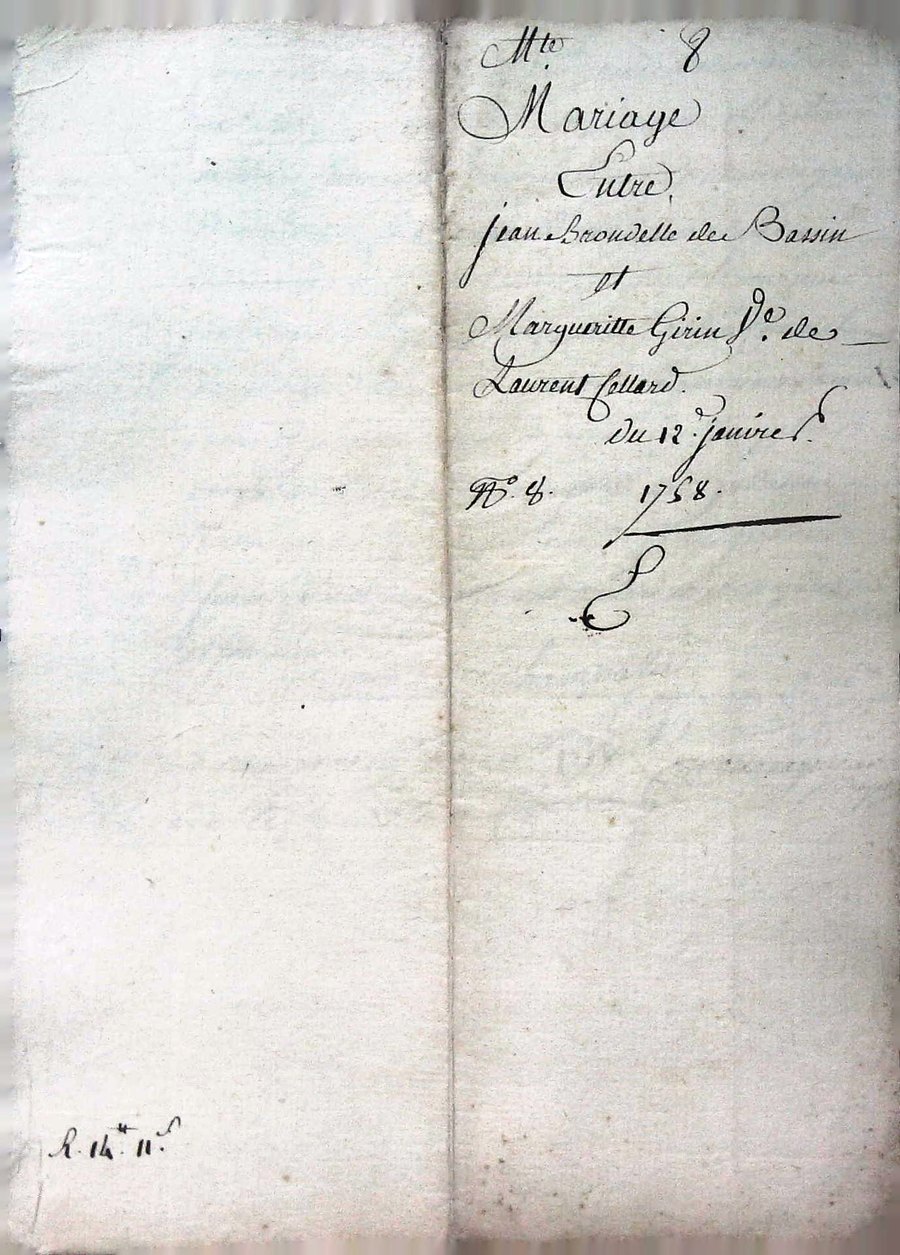 Mte. 8
Mariage
Entre,
jean Brondelle de Bassin
et
Margueritte Girin Ve. de
Laurent Cellard.
du 12. janvier.
No. 8. 1758.
R. 14tt. 11s.